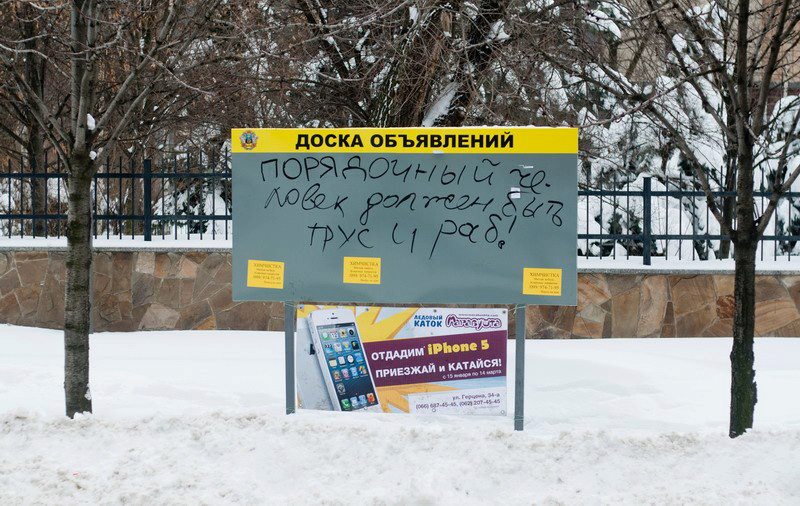 ДОСКА ОБЪЯВЛЕНИЙ
ПОРЯДОЧНЫЙ че-
ловек должен быть
трус и раб!
ХИМЧИСТКА
ХИМЧИСТКА
ХИМЧИСТКА
ЛЕДОВЫЙ
КАТОК
ОТДАДИМ iPhone 5
ПРИЕЗЖАЙ и КАТАЙСЯ!
с 15 января по 14 марта
ул. Герцена, 34-а
(066) 687-45-45, (062) 207-45-45